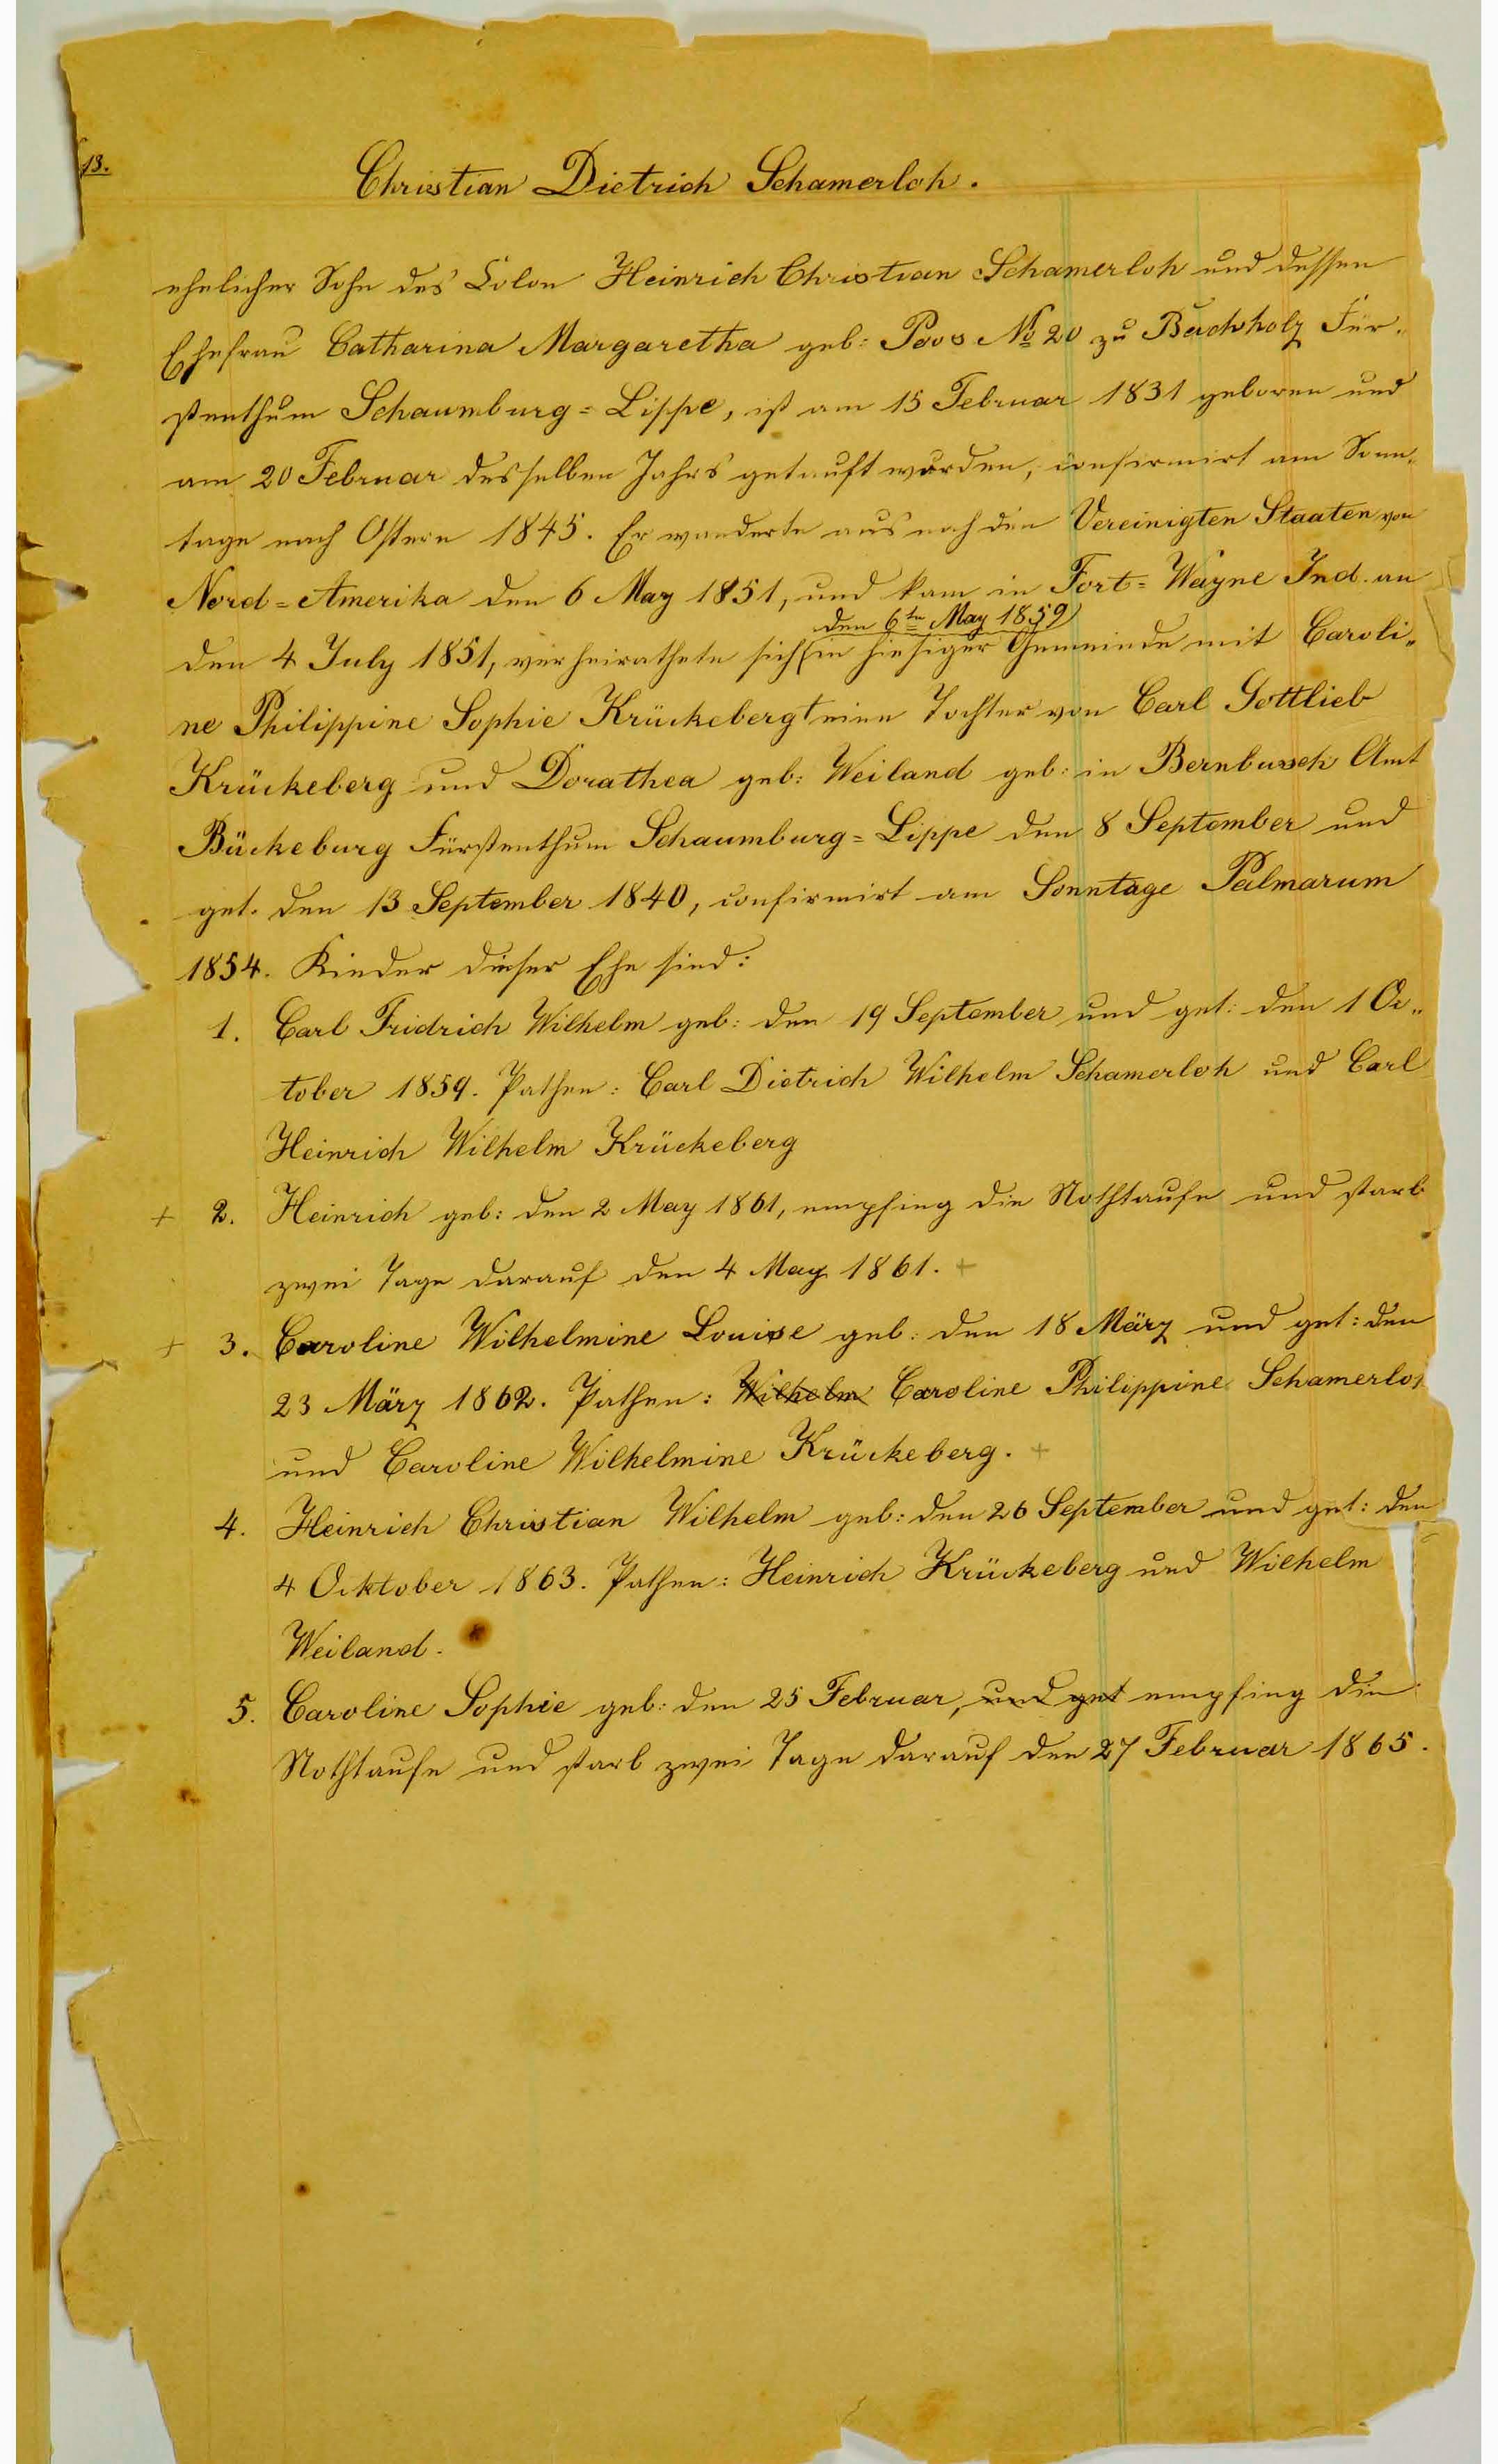 13.
Christian Dietrich Schamerloh.
ehelicher Sohn des Colon Heinrich Christian Schamerloh und dessen
Ehefrau Catharina Margaretha geb: Poos № 20 zu Buchholz Für-
stenthum Schaumburg=Lippe, ist am 15 Februar 1831 geboren und
am 20 Februar desselben Jahrs getauft worden, confirmirt am Sonn-
tage nach Ostern 1845. Er wanderte aus nach den Vereinigten Staaten von
Nord=Amerika den 6 May 1851, und kam in Fort=Wayne Ind. an
den 6te May 1859
den 4 July 1851, verheirathete sich in hiesiger Gemeinde mit Caroli-
ne Philippine Sophie Krückeberg eine Tochter von Carl Gottlieb
Krückeberg und Dorathea geb: Weiland geb: in Bernbusch Amt
Bückeburg Fürstenthum Schaumburg=Lippe den 8 September und
get. den 13 September 1840, confirmirt am Sonntage Palmarum
1854. Kinder dieser Ehe sind:
1. Carl Fridrich Wilhelm geb: den 19 September und get: den 1 Oc-
tober 1859. Pathen: Carl Dietrich Wilhelm Schamerloh und Carl
Heinrich Wilhelm Krückeberg
+ 2. Heinrich geb: den 2 May 1861, empfing die Nothtaufe und starb
zwei Tage darauf den 4 May 1861. +
+ 3. Caroline Wilhelmine Louise geb: den 18 März und get: den
23 März 1862. Pathen: Wilhelm Caroline Philippine Schamerloh
und Caroline Wilhelmine Krückeberg. +
4. Heinrich Christian Wilhelm geb: den 26 September und get: den
4 Ocktober 1863. Pathen: Heinrich Krückeberg und Wilhelm
Weiland.
5. Caroline Sophie geb: den 25 Februar, und get empfing die
Nothtaufe und starb zwei Tage darauf den 27 Februar 1865.